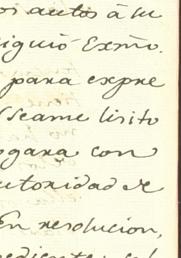 os autos á su
siguió Exmo.
para expre
(seame lisito
ogara con
utoridad de
En resolucion,